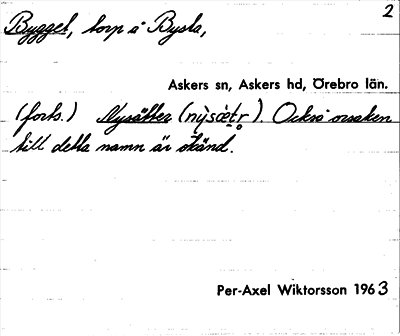 2
Bygget, torp å Bysta,
Askers sn, Askers hd, Örebro län.
(forts.) Nysätter (nỳsǽt̥r̥). Också orsaken
till detta namn är okänd.
Per-Axel Wiktorsson 1963